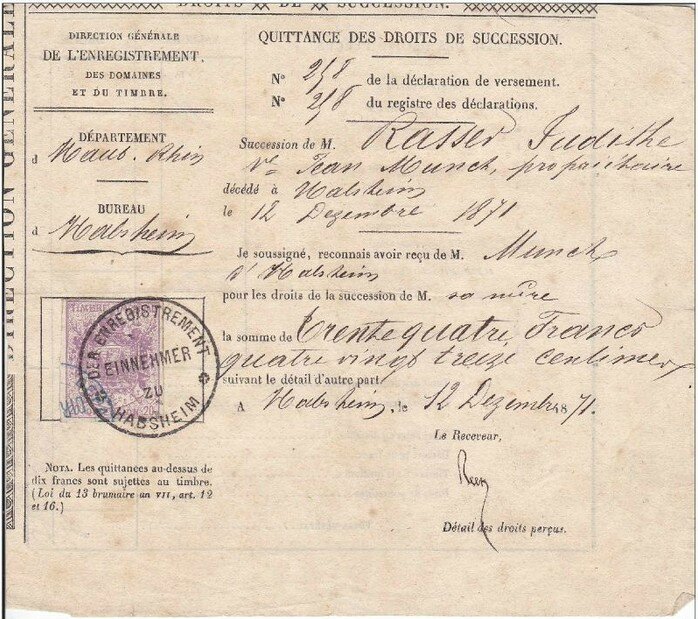 DROITS DE SUCCESSION.
DIRECTION GÉNÉRALE
DIRECTION GÉNÉRALE
DE L'ENREGISTREMENT,
DES DOMAINES
ET DU TIMBRE.
DÉPARTEMENT
d Haut-Rhin
BUREAU
d Habsheim
TIMBRE
DER ENREGISTREMENT
EINNEHMER
ZU
HABSHEIM
NOTA. Les quittances au-dessus de
dix francs sont sujettes au timbre.
(Loi du 13 brumaire an VII, art. 12
et 16.)
QUITTANCE DES DROITS DE SUCCESSION.
N° 258 de la déclaration de versement.
N° 258 du registre des déclarations.
Succession de M. Rasser Judithe
Ve Jean Munck, propriétaire
décédé à Habsheim
le 12 Dezembre 1871
Je soussigné, reconnais avoir reçu de M. Munck
d'Habsheim
pour les droits de la succession de M. sa mère
la somme de Trente quatre Francs
quatre vingt treize centimes
suivant le détail d'autre part
A Habsheim, le 12 Dezembre 1871.
Le Receveur,
Détail des droits perçus.